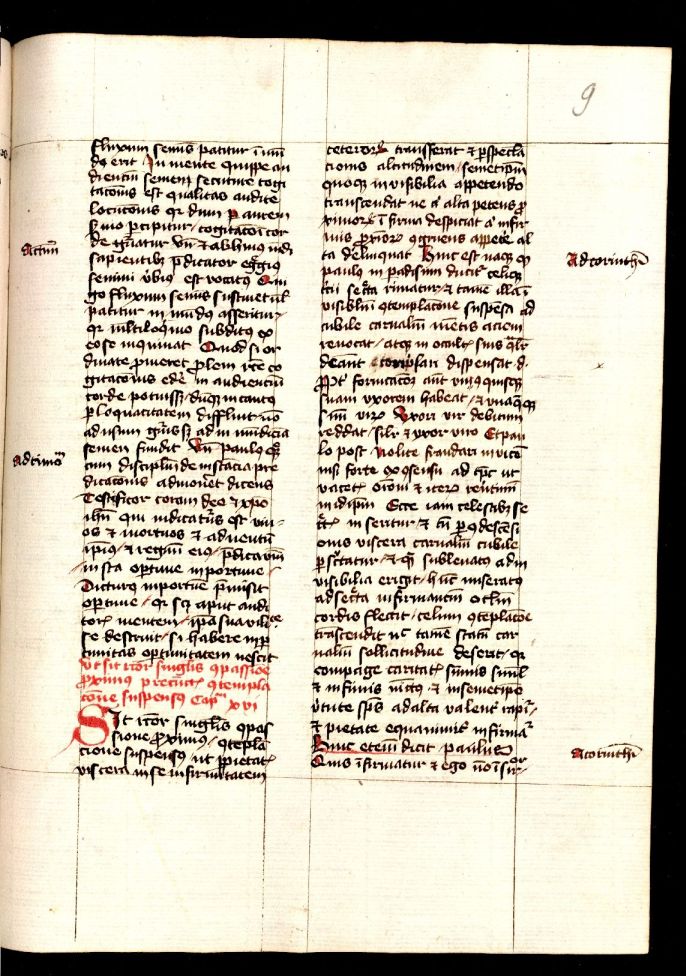 9
fluxum seminis patitur immun
dus erit In mente quippe au
dientium semen secuture cogi
tacionis est qualitas audite
locucionis quia dum per aurem
sermo percipitur cogitacio in cor
de generatur Unde et ab huius mundi
sapientibus predicator egregius
semini verbius est vocatus Qui
ergo fluxum seminis sustinet vel
patitur inmundus asseritur
quia multiloquio subditus ex
eo se inquinat Quod si or
dinate promeret prolem recte co
gitacionis edere in audiencium
corde potuisset dumque incautus
per loquacitatem diffluit non
ad usum generis sed ad inmundiciam
semen fundit Unde Paulus
cum discipulum de instancia pre
dicacionis admonet dicens
Testificor coram deo et xpo
ihu qui iudicaturus est viu
os et mortuos et adventum
ipsius et regnum eius predica verbum
insta oportune inportune
Dicturus inportune premisit
oportune quia scilicet aput audi
toris mentem ipsa sua vilitate
se destruit si habere inpor
tunitas oportunitatem nescit
Ut sit rector singulis compassione
proximus precunctis contempla
cione suspensus Cap xvi
Sit rector singulis compas
sione proximus contempla
cione suspensus ut pietatis
viscera in se infirmitatem
ceterorum transferat et per specula
cionis altitudinem semetipsum
quoque invisibilia appetendo
transcendat ne aut alta petens pro
ximorum infirma despiciat aut infir
mis proximorum congruens appetere al
ta derelinquat Hinc est namque quod
paulus in padisum ducitur celique
tercii secreta rimatur et tamen illa in
visibilium contemplacione suspensus ad
cubile carnalium mentis aciem
revocat atque in occultis suis qualiter
debeant conversari dispensat d.
Propter fornicacionem autem unusquisque
suam uxorem habeat et unaqueque
suum virum Uxori vir debitum
reddat similiter et uxor viro Et pau
lo post Nolite fraudari invicem
nisi forte ex consensu ad tempus ut
vacetis orationi et iterum revertimini
in idipsum Ecce iam celestibus se
cretis inseritur et tamen per condescensi
onis viscera carnalium cubile
perscrutatur et quem sublevatus ad in
visibilia erigit hunc miseratus
ad secreta infirmancium oculum
cordis flectit celum contemplacione
transcendit nec tamen statum car
nalium sollicitudine deserit quia
compage caritatis summis simul
et infimis iunctus et in semetipso
virtute spiritus ad alta valenter rapitur
et pietate equanimiter infirmatur
Hinc etenim dicit paulus
Quis infirmatur et ego non infirmor
Actuum
Ad timo
Ad corinth
A corinth